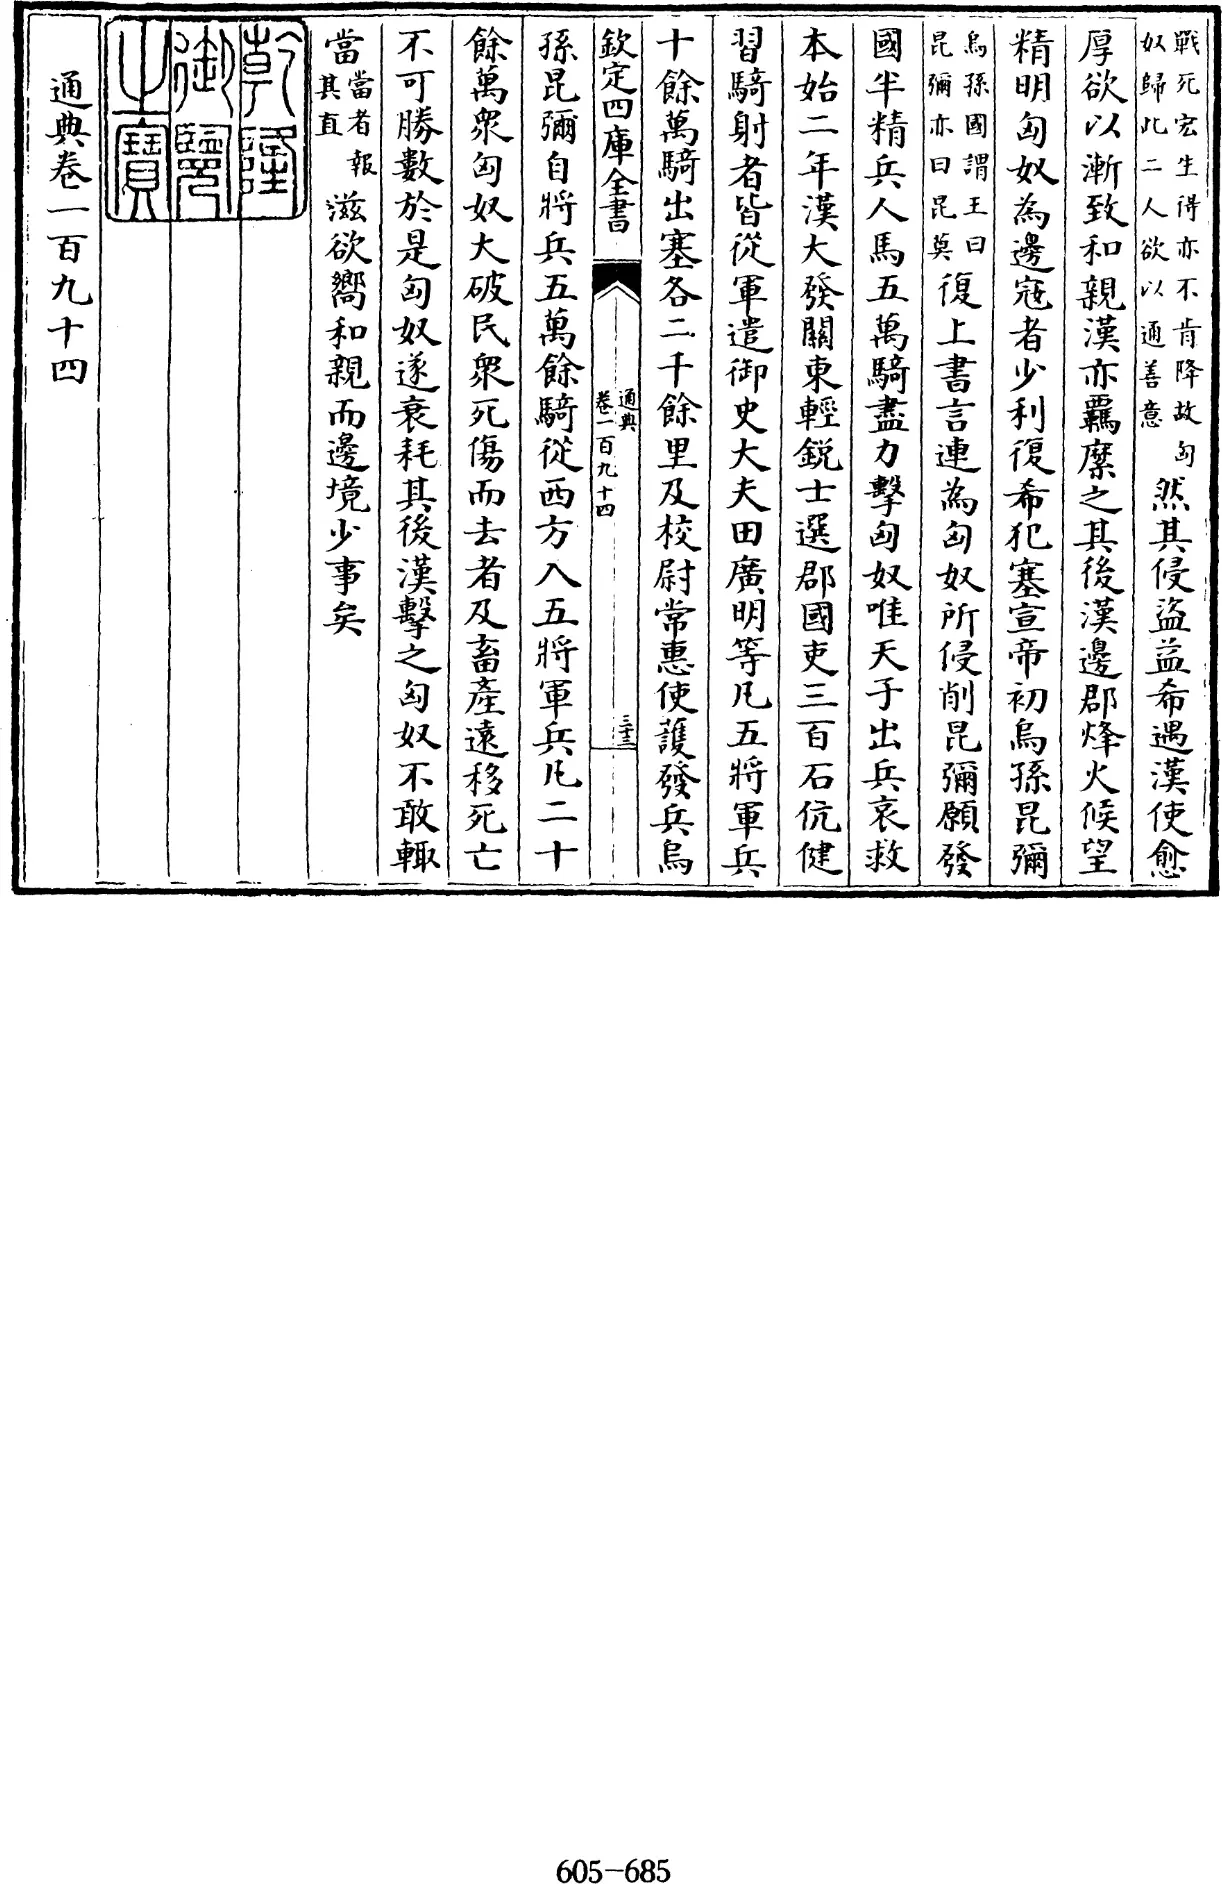 戰死宏生得亦不肯降故匈
奴歸此二人欲以通善意
然其侵盜益希遇漢使愈
厚欲以漸致和親漢亦羈縻之其後漢邊郡烽火候望
精明匈奴為邊宼者少利復希犯塞宣帝初烏孫昆彌
烏孫國謂王曰
昆彌亦曰昆莫
復上書言連為匈奴所侵削昆彌願發
國半精兵人馬五萬騎盡力擊匈奴唯天子出兵哀救
本始二年漢大發關東輕銳士選郡國吏三百石伉健
習騎射者皆從軍遣御史大夫田廣明等凡五將軍兵
十餘萬騎出塞各二千餘里及校尉常惠使護發兵烏
欽定四庫全書
通典
卷一百九十四
三十三
孫昆彌自將兵五萬餘騎從西方入五將軍兵凡二十
餘萬衆匈奴大破民衆死傷而去者及畜產遠移死亡
不可勝數於是匈奴遂衰耗其後漢擊之匈奴不敢輙
當
當者報
其直
滋欲嚮和親而邊境少事矣
乾隆
御覽
之寶
通典卷一百九十四
605-685